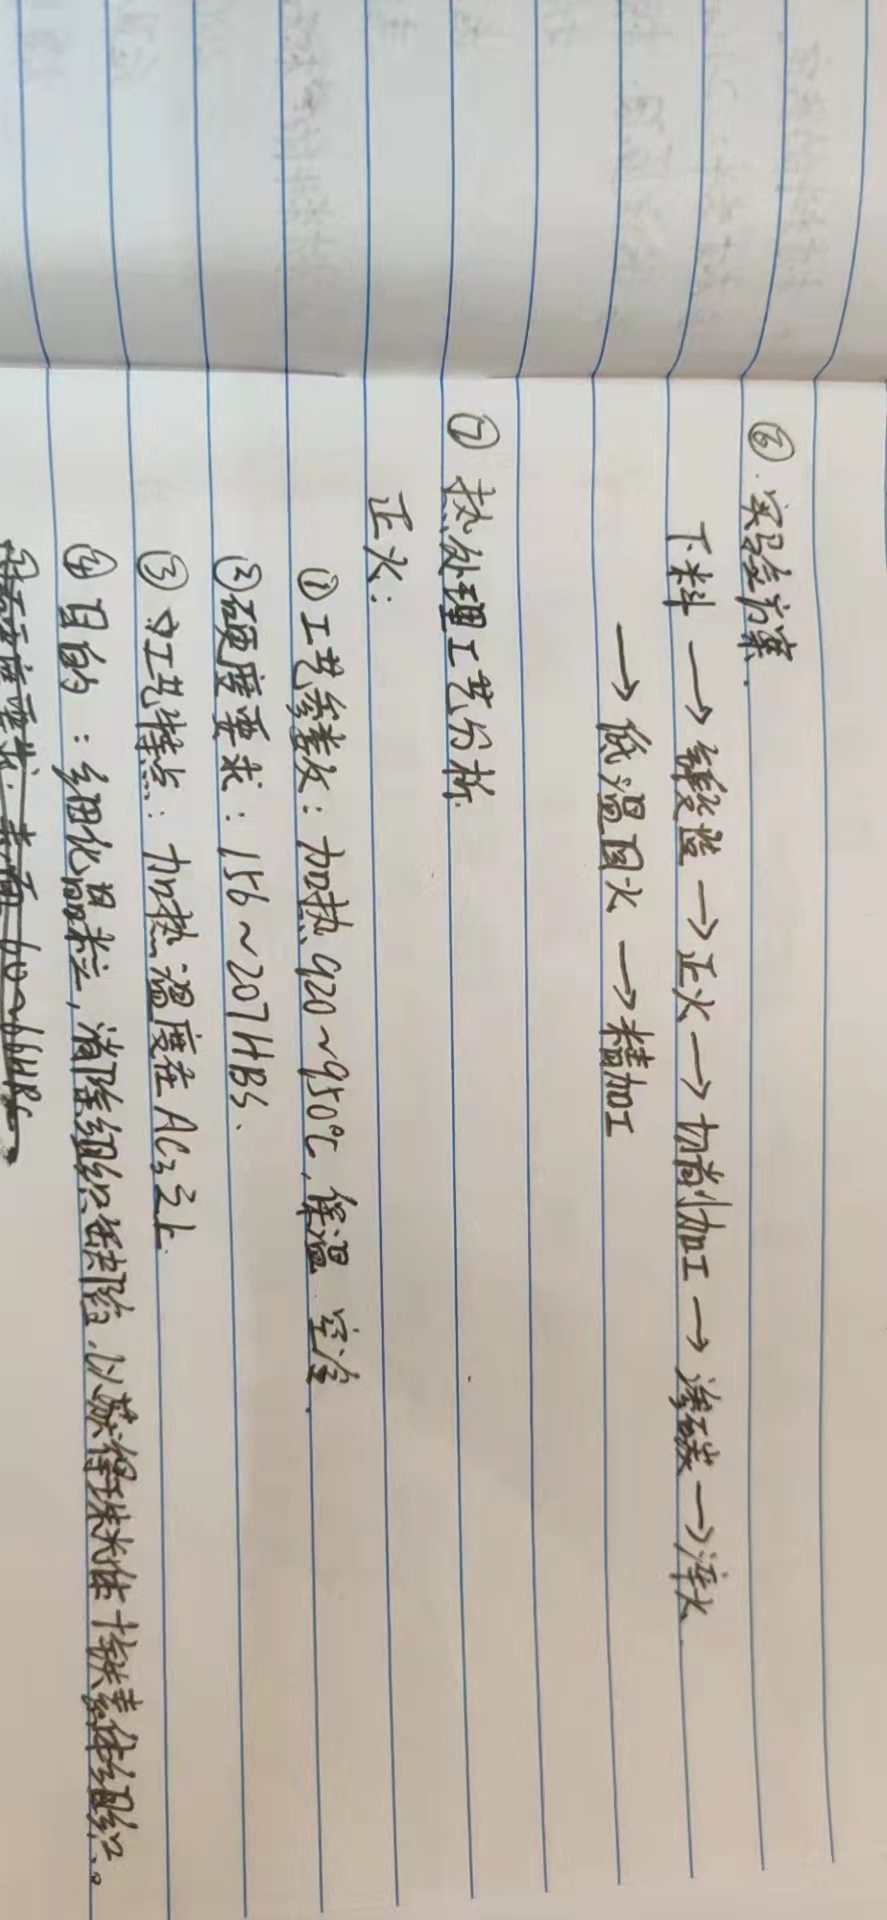 ⑥.实验方案.
下料 → 锻造 → 正火 → 切削加工 → 渗碳 → 淬火
→ 低温回火 → 精加工
⑦ 热处理工艺分析.
正火:
①工艺参数: 加热920~950℃, 保温 空冷.
②硬度要求: 156~207HBS.
③工艺特点: 加热温度在AC3之上.
④目的: 细化晶粒, 消除组织缺陷, 以获得珠光体+铁素体组织。
硬度要求: 表面60~66HRC